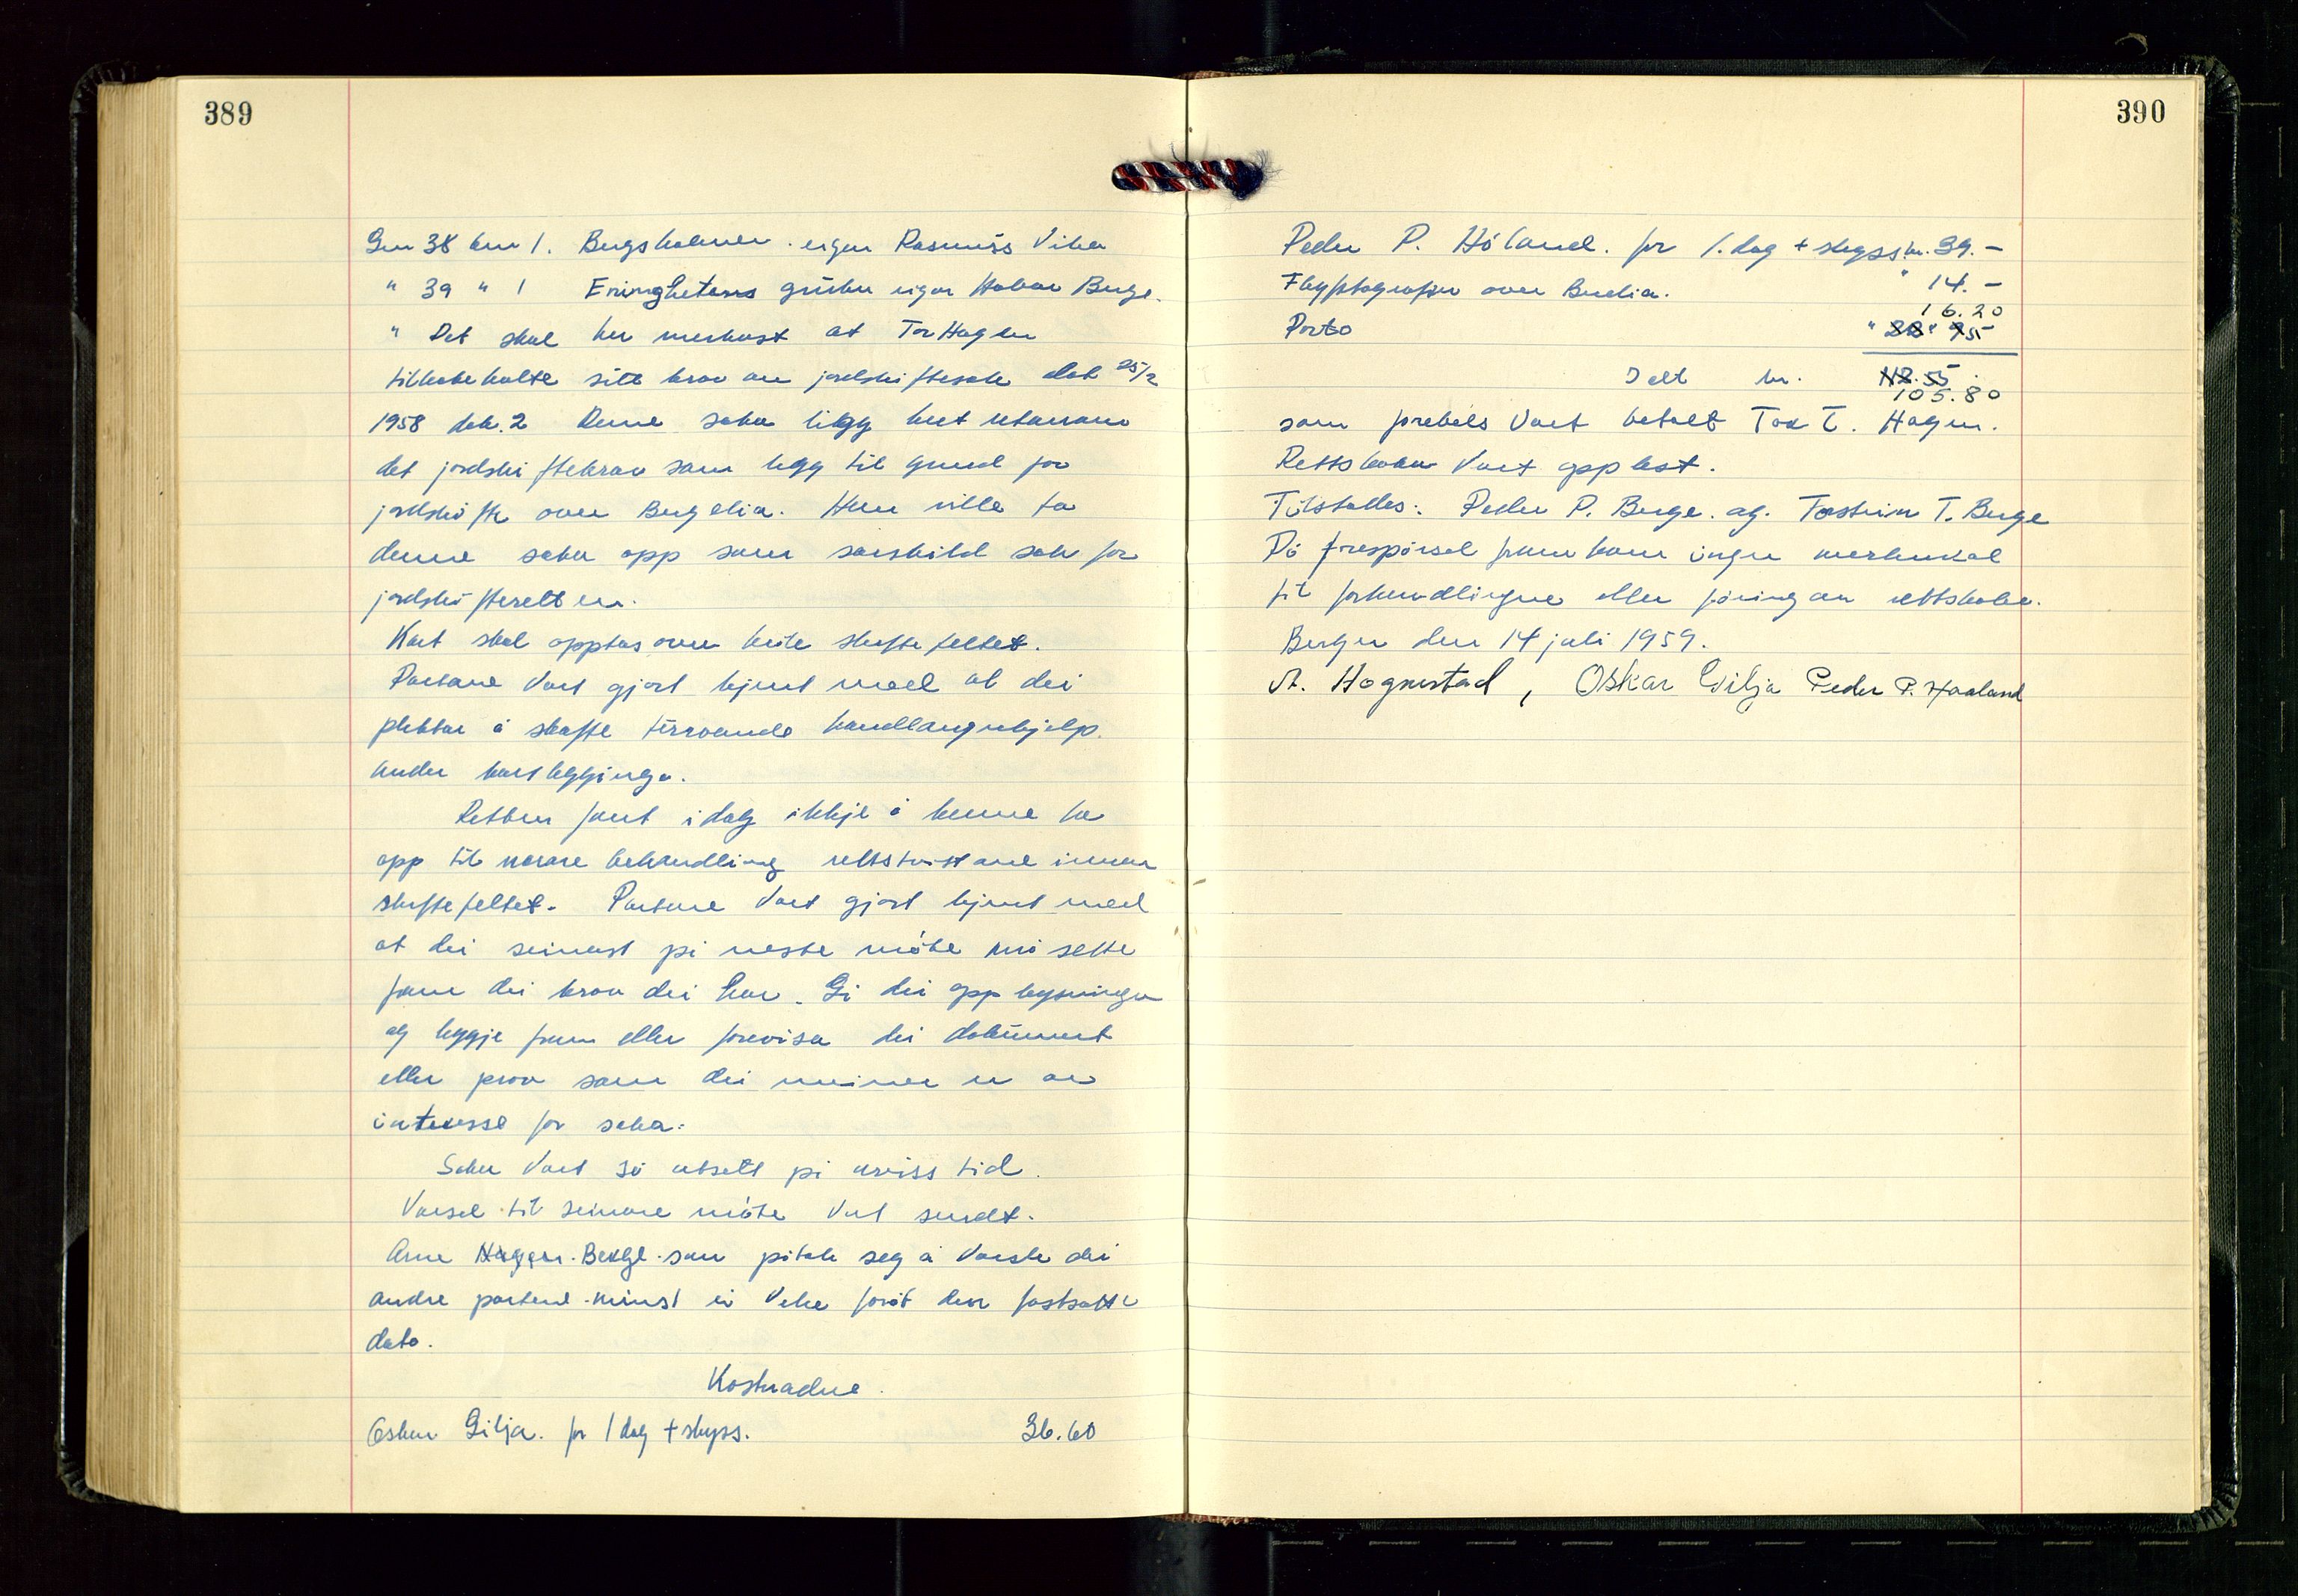 389
Gnr 38 bnr 1. Bergsholmen. eigar Rasmus Vika
" 39 " 1 Eringhetens grunn eigar Håkon Berge.
" Det skal her merkast at Tor Hagen
tilbakekalte sitt krav om jordskiftesak dat 25/2
1958 dok. 2 Denne saka ligg heilt utanom
det jordskiftekrav som ligg til grunn for
jordskifte over Bergelia. Han ville ta
denne saka opp som sarskild sak for
jordskifteretten.
Kart skal opptas over heile skiftefeltet.
Partane vart gjort kjent med at dei
pliktar å skaffe turvande handlangerhjelp
under kartlegginga.
Retten fant i dag ikkje å kunne ta
opp til nærare behandling rettstvistane innan
skiftefeltet. Partane vart gjort kjent med
at dei seinast på neste møte må sette
fram dei krav dei har. Gi dei opplysningar
og leggje fram eller forevisa dei dokument
eller prov som dei meiner er av
interesse for saka.
Saka vart så utsett på uviss tid.
Varsel til seinare møte vert sendt.
Arne Hagen. Berge. som påtok seg å varsle dei
andre partene minst ei veke forut den fastsatte
dato.
Kostnadne.
Oskar Gilja. for 1 dag + skyss. 36.60
390
Peder P. Håland. for 1. dag + skyss. kr. 39.-
Flyfotografier over Buelia. " 14.-
16.20
Porto " 22" 95
I alt kr. 112.55
105.80
som førebels vart betalt Tor T. Hagen.
Rettsboka vart opplest.
Tilstelles: Peder P. Berge. og. Torstein T. Berge
På forespørsel framkom ingen merknad
til forhandlingne eller føring av rettsboka.
Bergen den 14 juli 1959.
A. Hognestad, Oskar Gilja Peder P. Haaland